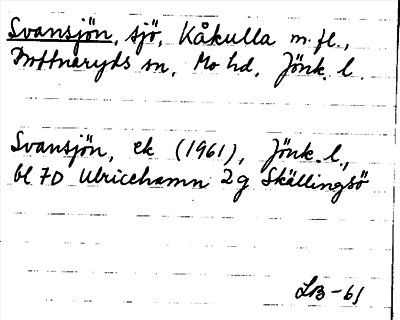 Svansjön, sjö, Kåkulla m. fl.,
Mo hd, Jönk. l.
Svansjön, ek (1961), Jönk. l.,
bl 7D Ulricehamn 2g Skällingsö
LB-61